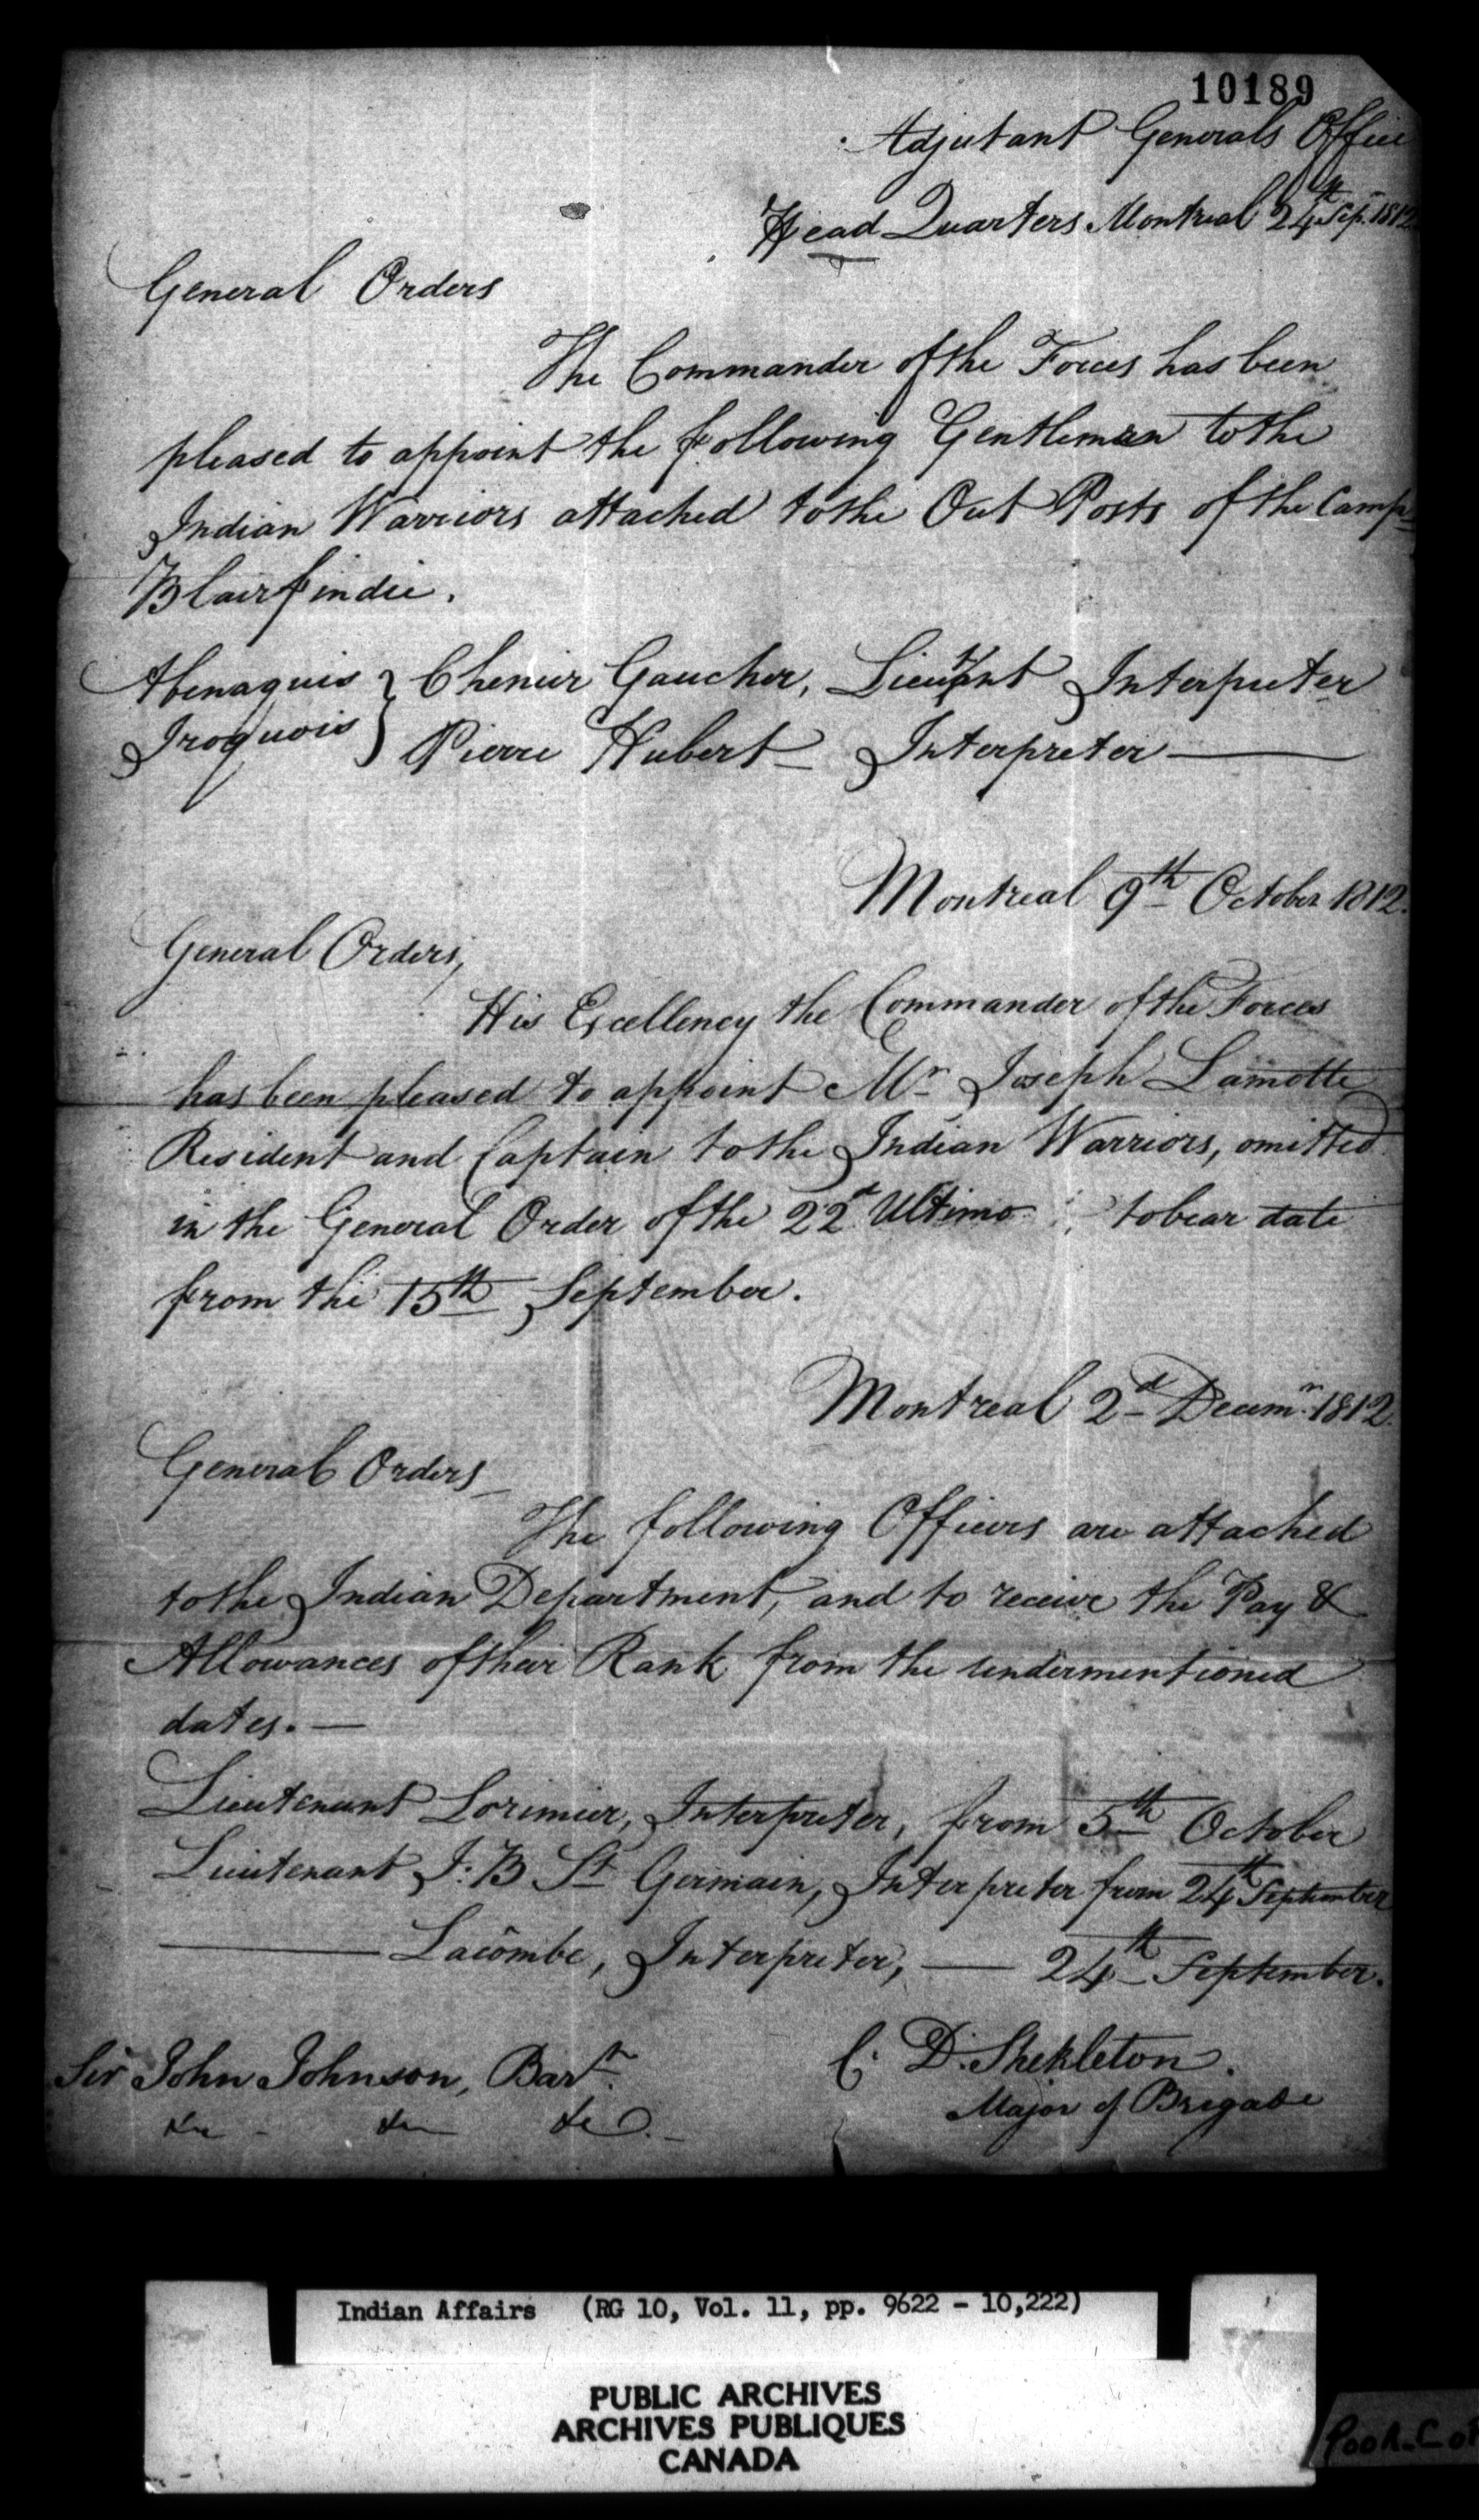 10189
Adjutant Generals Office
Head Quarters Montreal 24th Sep. 1812
General Orders
The Commander of the Forces has been
pleased to appoint the following Gentleman to the
Indian Warriors attached to the Out Posts of the Camp
Blairfindie.
Abenaquis } Chenier Gaucher, Lieutnt Interpreter
Iroquois } Pierre Hubert - Interpreter —
Montreal 9th October 1812.
General Orders,
His Excellency the Commander of the Forces
has been pleased to appoint Mr Joseph Lamotte
Resident and Captain to the Indian Warriors, omitted
in the General Order of the 22d Ultimo to bear date
from the 15th September.
Montreal 2d Decemr. 1812.
General Orders
The following Officers are attached
to the Indian Department, and to receive the Pay &
Allowances of their Rank from the undermentioned
dates. —
Lieutenant Lorimier, Interpreter, from 5th October
Lieutenant J: B St Germain, Interpreter from 24th September
——— Lacombe, Interpreter, — 24th September.
Sir John Johnson, Bart.
&c &c &c.
C. D. Shekleton.
Major of Brigade
Indian Affairs (RG 10, Vol. 11, pp. 9622 - 10,222)
PUBLIC ARCHIVES
ARCHIVES PUBLIQUES
CANADA